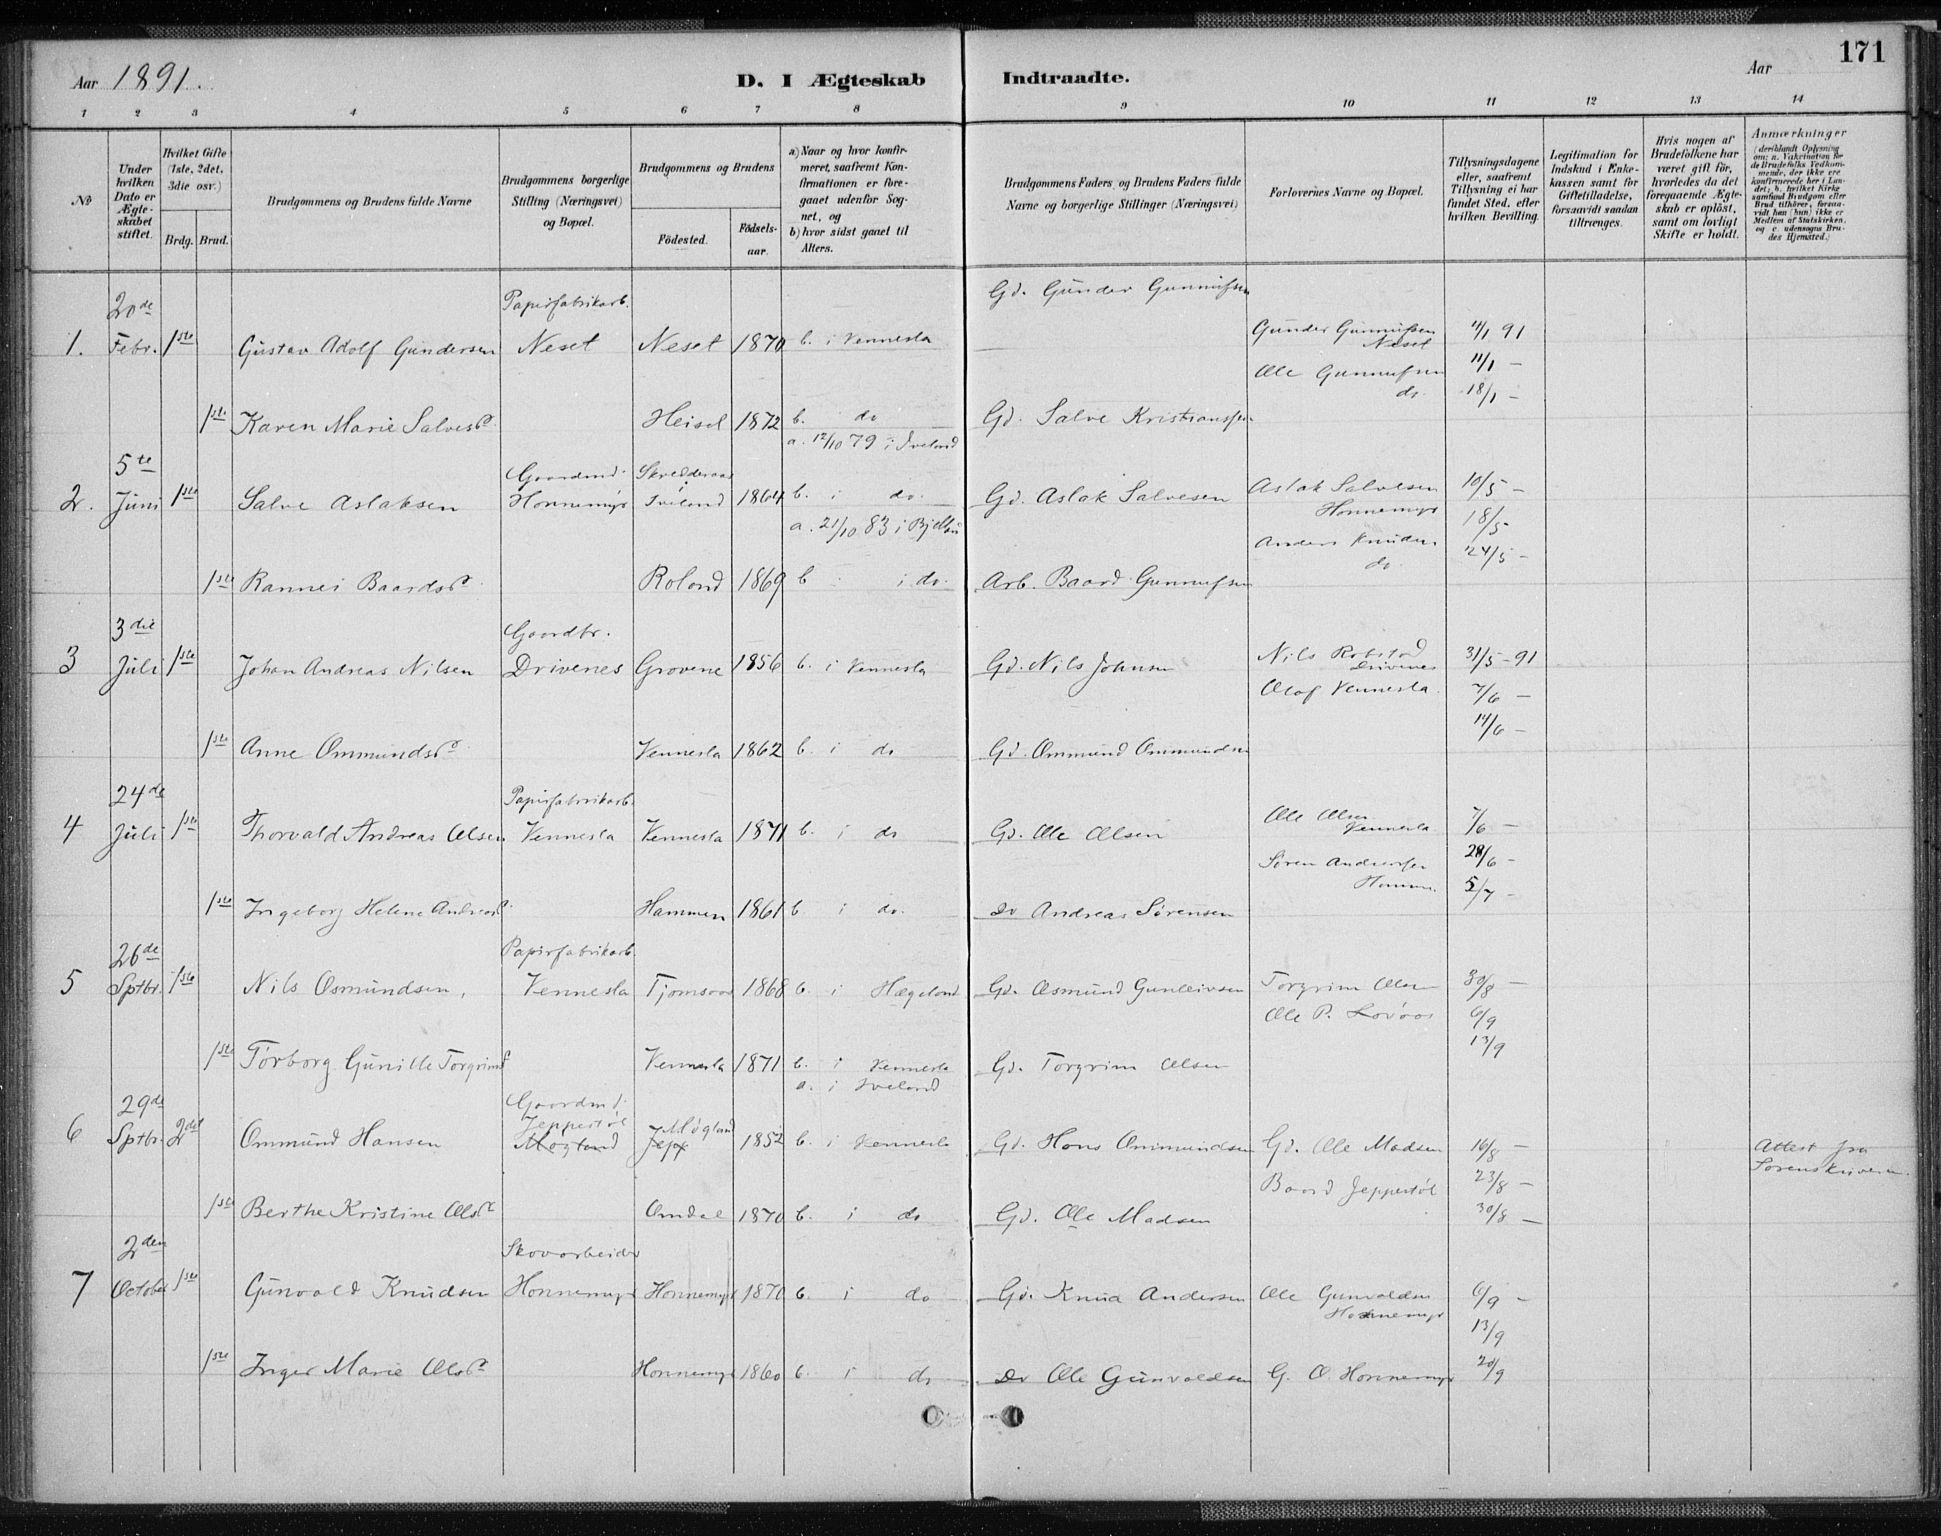 171
Aar 1891.
D. I Ægteskab Indtraadte.
Aar
1 2 3 4 5 6 7 8 9 10 11 12 13 14
№
Under hvilken Dato er Ægteskabet stiftet.
Hvilket Gifte (1ste, 2det, 3die osv.)
Brdg. Brud.
Brudgommens og Brudens fulde Navne
Brudgommens borgerlige Stilling (Næringsvei) og Bopæl.
Brudgommens og Brudens
Födested. Födselsaar.
a) Naar og hvor konfirmeret, saafremt Konfirmationen er foregaaet udenfor Sognet, og
b) hvor sidst gaaet til Alters.
Brudgommens Faders og Brudens Faders fulde Navne og borgerlige Stillinger (Næringsvei)
Forlovernes Navne og Bopæl.
Tillysningsdagene eller, saafremt Tillysning ei har fundet Sted, efter hvilken Bevilling.
Legitimation for Indskud i Enkekassen samt for Giftetilladelse, forsaavidt saadan tiltrænges.
Hvis nogen af Brudefolkene har været gift før, hvorledes da det foregaaende Ægteskab er opløst, samt om lovligt Skifte er holdt.
Anmærkninger (deriblandt Oplysning om: a. Vakcination for de Brudefolks Vedkommende, der ikke ere konfirmerede her i Landet; b. hvilket Kirkesamfund Brudgom eller Brud tilhörer, forsaavidt han (hun) ikke er Medlem af Statskirken, og c. udensogns Brudes Hjemsted.)
20de Papirfabrikarb. Gd. Gunder Gunnufsen
1. Febr. 1ste Gustav Adolf Gundersen Neset Neset 1870 b. i Vennesla Gunder Gunnufsen Neset 4/1 91
Ole Gunnufsen do. 11/1 —
18/1 —
1ste Karen Marie Salvesd. Heisel 1872 b. do Gd. Salve Kristiansen
a. 12/10 79 i Iveland
5te Gaardmd. Skredderaas
2. Juni 1ste Salve Aslaksen Honnemyr Iveland 1864 b. i do. Gd. Aslak Salvesen Aslak Salvesen Honnemyr 10/5 —
a. 21/10 83 i 18/5
Anders Knudsen do. 24/5 —
1ste Rannei Baardsd. Roland 1869 b i do. Arb. Baard Gunnufsen
3die Gaardbr.
3 Juli 1ste Johan Andreas Nilsen Drivenes Grovene 1856 b. i Vennesla Gd. Nils Johnsen Nils Robstad Drivenes 31/5 - 91
Olaf Vennesla. 7/6 —
14/6 —
1ste Anne Ommundsd. Vennesla 1862 b. i do Gd. Ommund Ommundsen
24de Papirfabrikarb.
4 Juli 1ste Thorvald Andreas Olsen Vennesla Vennesla 1871 b. i do Gd. Ole Olsen Ole Olsen Vennesla 7/6 —
Søren Andreassen 28/6 —
5/7 —
1ste Ingeborg Helene Andreasd. Hammen 1861 b i do. Do Andreas Sørensen
26de Papirfabrikarb.
5 Sptbr. 1ste Nils Osmundsen, Vennesla Tjomsaas 1868 b. i Hægeland Gd. Osmund Gunleivsen Torgrim Olsen 30/8 —
Ole P. Lovaas 6/9
13/9
1ste Torborg Gunille Torgrimsd Vennesla 1871 b. i Vennesla Gd. Torgrim Olsen
a. i Iveland
29de Gaardmd. Jeppestøl Møgland
6 Sptbr. 2det Ommund Hansen Mogland Jepp 1852 b. i Vennesla Gd. Hans Ommundsen Gd. Ole Madsen 16/8 — Attest fra Sorenskriveren
Baard Jeppestøl 23/8 —
1ste Berthe Kristine Olsd. Omdal 1870 b. i do Gd. Ole Madsen 30/8 —
2den Skovarbeider
7 October 1ste Gunvald Knudsen Honnemyr Honnemyr 1870 b. i do Gd. Knud Andersen Ole Gunvaldsen Honnemyr 6/9 —
13/9
1ste Inger Marie Olsd. Honnemyr 1860 b. i do Do Ole Gunvaldsen G. O. Honnemyr 20/9